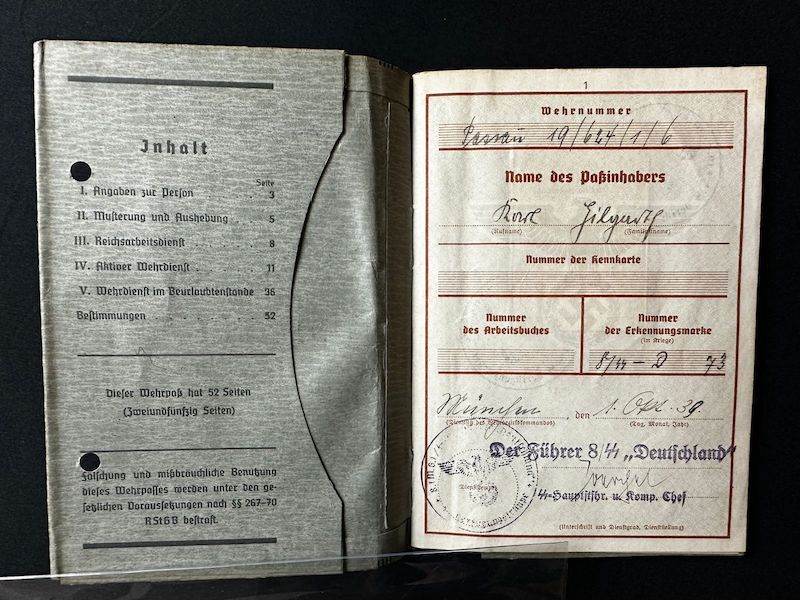 Inhalt
Seite
I. Angaben zur Person . . . . 3
II. Musterung und Aushebung . . 5
III. Reichsarbeitsdienst . . . . 8
IV. Aktiver Wehrdienst . . . . 11
V. Wehrdienst im Beurlaubtenstande 36
Bestimmungen . . . . . . 52
Dieser Wehrpaß hat 52 Seiten
(Zweiundfünfzig Seiten)
Fälschung und mißbräuchliche Benutzung
dieses Wehrpasses werden unter den ge-
setzlichen Voraussetzungen nach §§ 267-70
RStGB bestraft.
1
Wehrnummer
Passau 19/624/1/6
Name des Paßinhabers
Karl Hilgarth
(Rufname) (Familienname)
Nummer der Kennkarte
Nummer
des Arbeitsbuches
Nummer
der Erkennungsmarke
(im Kriege)
8/SS – D 73
München, den 1. Okt. 39
(Dienstsitz des Wehrbezirkskommandos) (Tag, Monat, Jahr)
Der Führer 8/SS „Deutschland"
SS-Hauptstbr. u. Komp. Chef
(Unterschrift und Dienstgrad, Dienststellung)